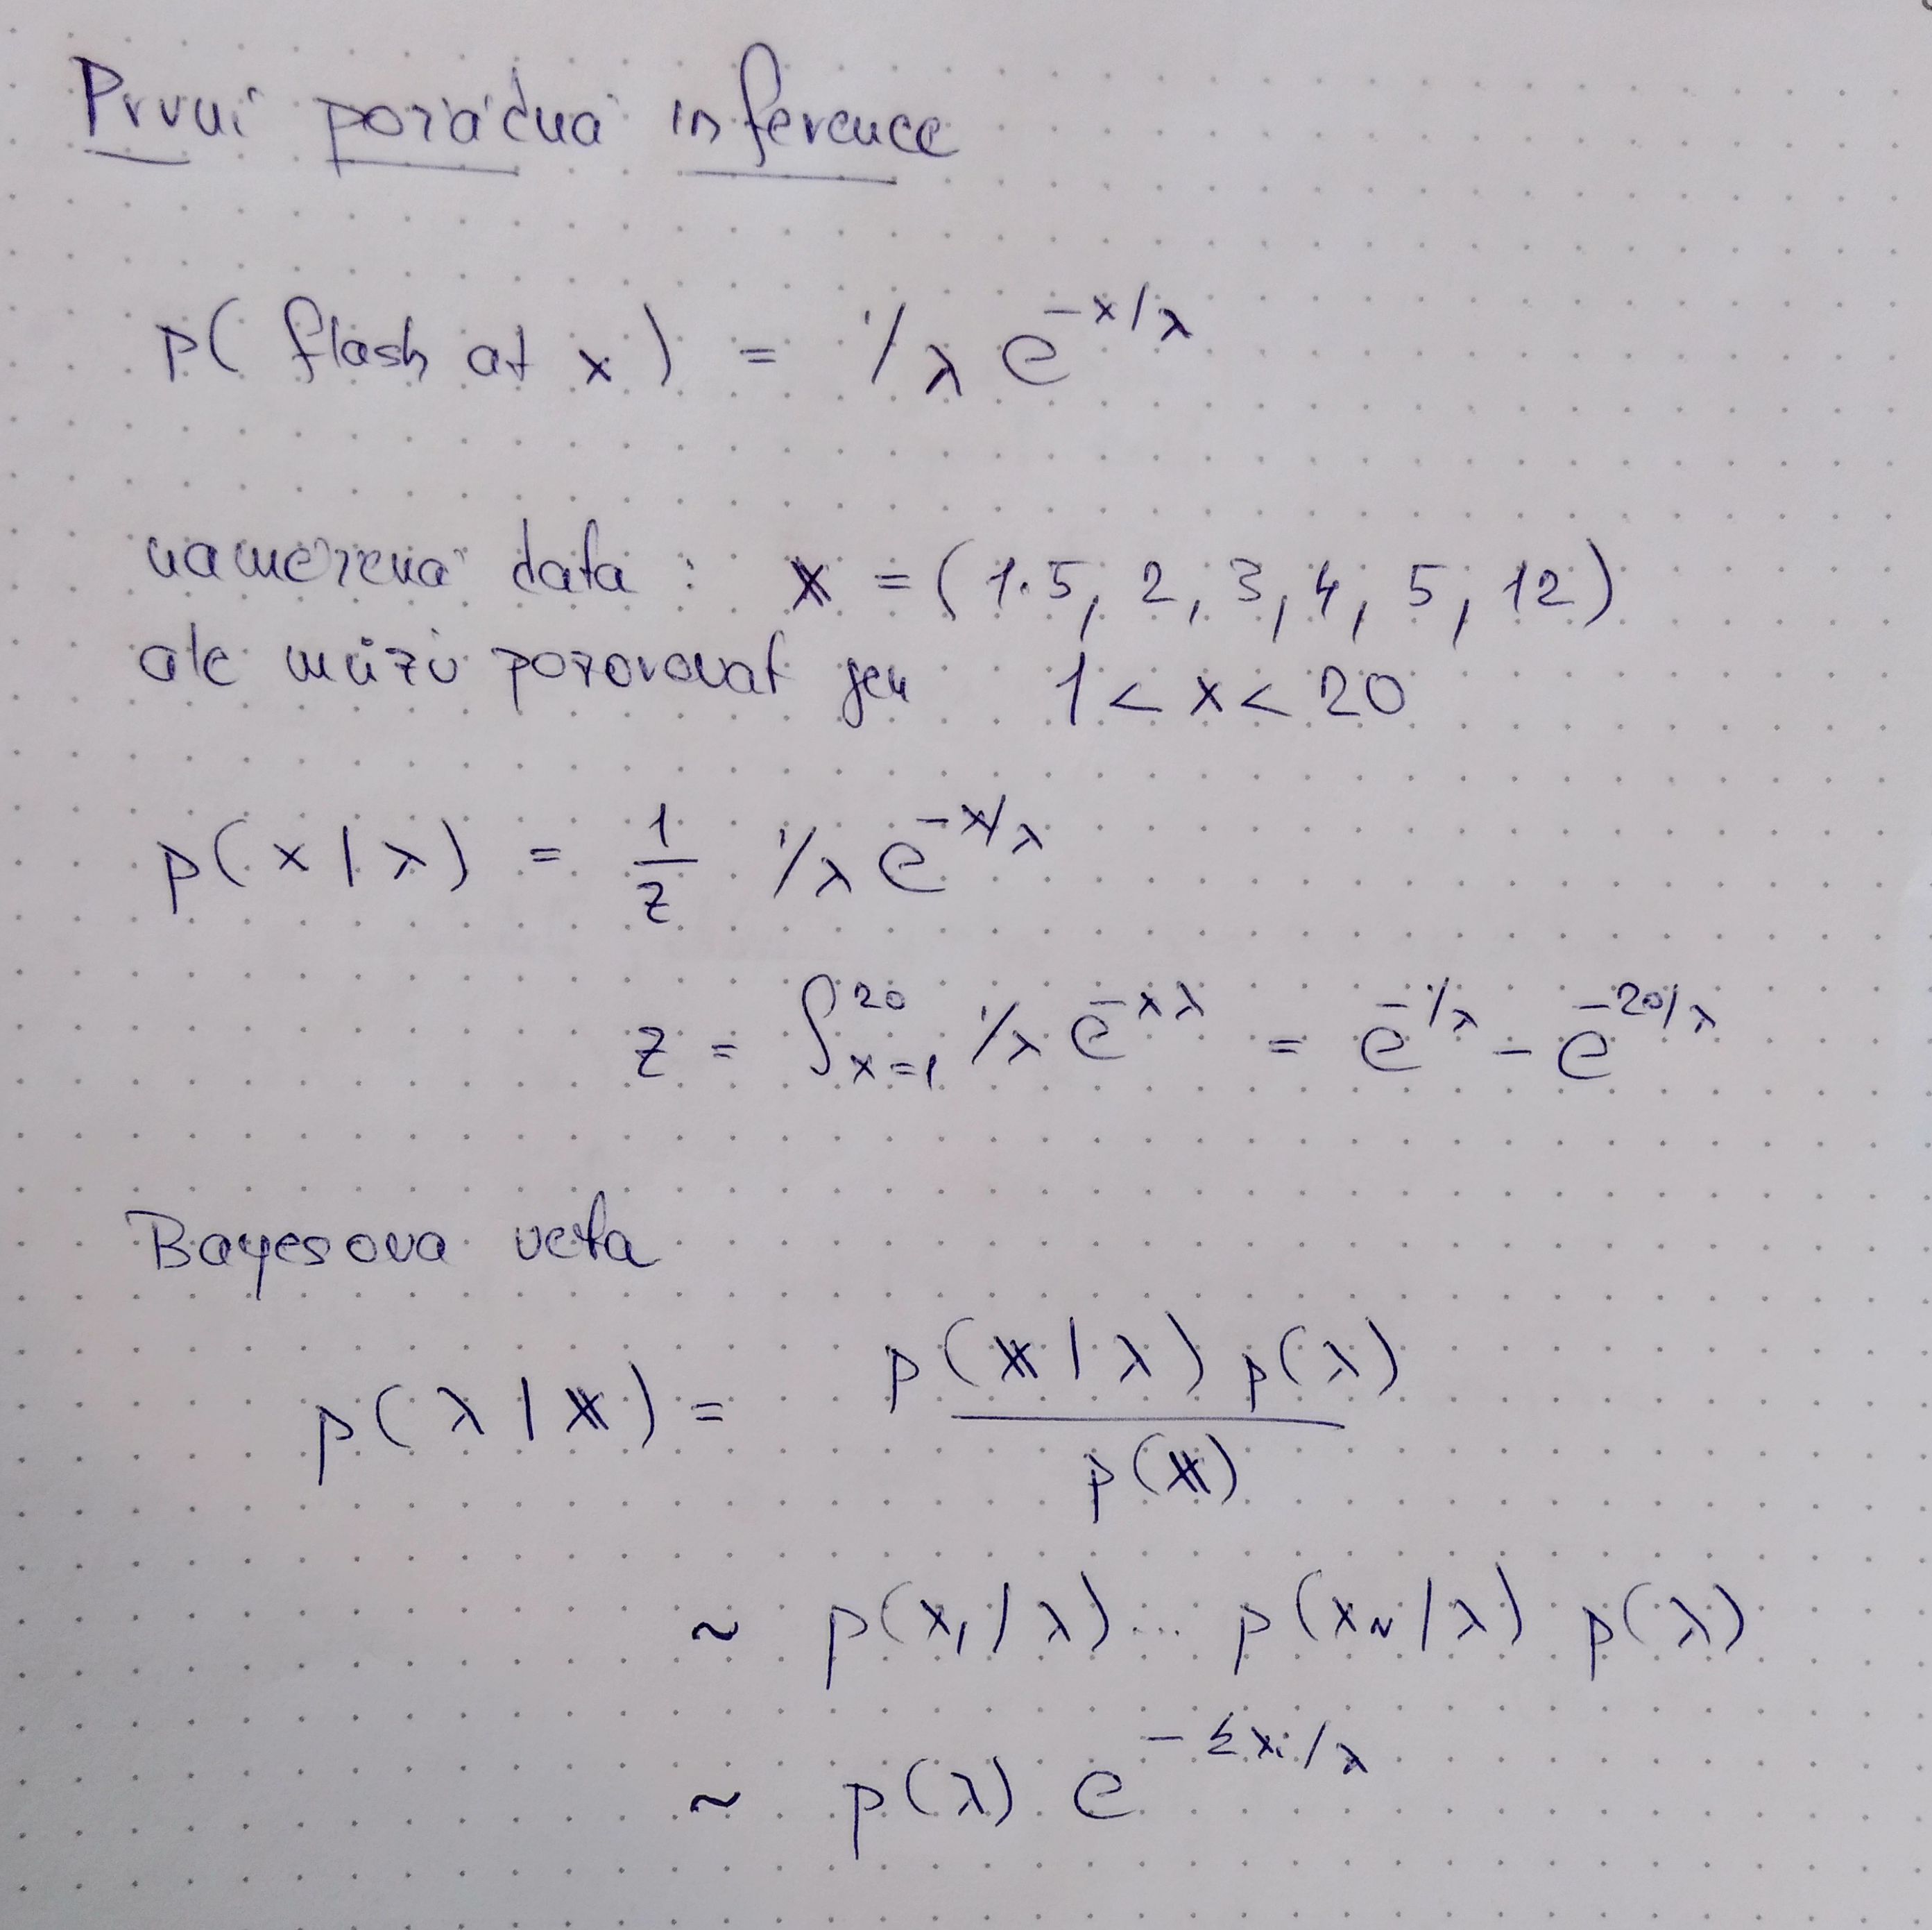 První pořádná inference
p( flash at x ) = 1/λ e^{-x/λ}
naměřená data : 𝕏 = (1.5, 2, 3, 4, 5, 12)
ale můžu pozorovat jen 1 < x < 20
p(x|λ) = 1/z 1/λ e^{-x/λ}
z = ∫_{x=1}^{20} 1/λ e^{-xλ} = e^{-1/λ} - e^{-20/λ}
Bayesova veta
p(λ|𝕏) = p(𝕏|λ) p(λ) / p(𝕏)
~ p(x₁|λ)... p(x_N|λ) p(λ)
~ p(λ) e^{-Σxᵢ/λ}